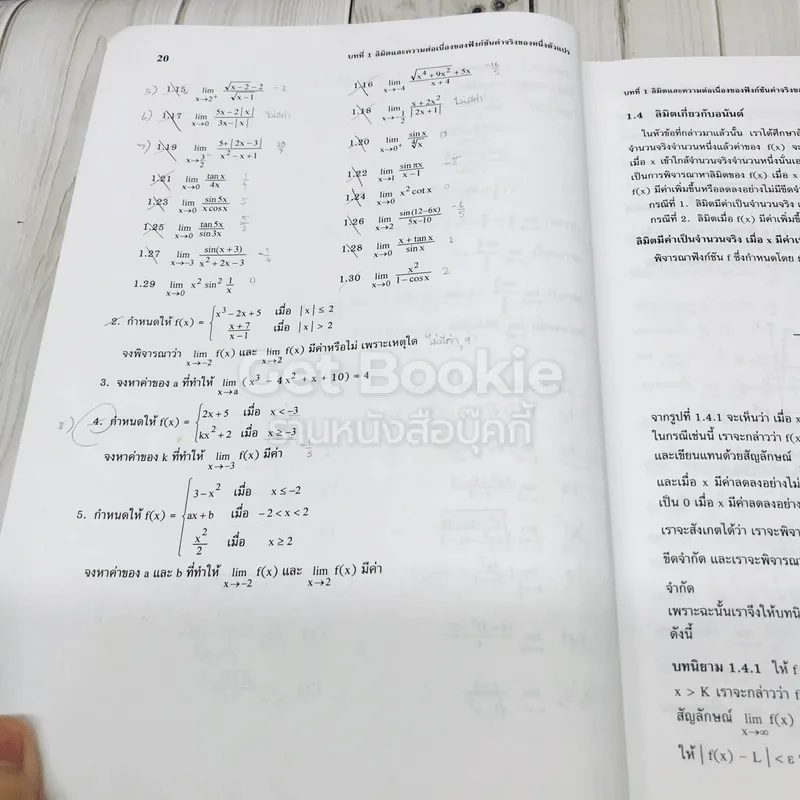 20
บทที่ 1 ลิมิตและความต่อเนื่องของฟังก์ชันค่าจริงของหนึ่งตัวแปร
5) 1.15 lim x→2⁺ (√(x−2) − 2)/√(x−1) −2
1.16 lim x→−4 (√(x⁴+9x²) + 5x)/(x+4)
6) 1.17 lim x→0 (5x−2|x|)/(3x−|x|) ไม่มีค่า
1.18 lim x→−1/2 (x+2x²)/|2x+1| ไม่มีค่า
7) 1.19 lim x→3/2 (5+|2x−3|)/(x²−x+1)
1.20 lim x→0⁺ sin x/∜x 0
1.21 lim x→0 tan x/4x 1/4
1.22 lim x→1 sin πx/(x−1) −π
1.23 lim x→0 sin 5x/(x cos x) 5
1.24 lim x→0 x² cot x 0
1.25 lim x→0 tan 5x/sin 3x 5/3
1.26 lim x→2 sin(12−6x)/(5x−10) −6/5
1.27 lim x→−3 sin(x+3)/(x²+2x−3) −1/4
1.28 lim x→0 (x+tan x)/sin x 2
1.29 lim x→0 x² sin² 1/x 0
1.30 lim x→0 x²/(1−cos x) 2
2. กำหนดให้ f(x) = { x³−2x+5 เมื่อ |x| ≤ 2
(x+7)/(x−1) เมื่อ |x| > 2
จงพิจารณาว่า lim x→−2 f(x) และ lim x→2 f(x) มีค่าหรือไม่ เพราะเหตุใด ไม่มีค่า, 9
3. จงหาค่าของ a ที่ทำให้ lim x→a (x³ − 4x² + x + 10) = 4
8) 4. กำหนดให้ f(x) = { 2x+5 เมื่อ x < −3
kx²+2 เมื่อ x ≥ −3
จงหาค่าของ k ที่ทำให้ lim x→−3 f(x) มีค่า −1/3
5. กำหนดให้ f(x) = { 3−x² เมื่อ x ≤ −2
ax+b เมื่อ −2 < x < 2
x²/2 เมื่อ x ≥ 2
จงหาค่าของ a และ b ที่ทำให้ lim x→−2 f(x) และ lim x→2 f(x) มีค่า
Get Bookie
ร้านหนังสือบุ๊คกี้
บทที่ 1 ลิมิตและความต่อเนื่องของฟังก์ชันค่าจริงข
1.4 ลิมิตเกี่ยวกับอนันต์
ในหัวข้อที่กล่าวมาแล้วนั้น เราได้ศึกษาถึ
จำนวนจริงจำนวนหนึ่งแล้วค่าของ f(x) จะ
เมื่อ x เข้าใกล้จำนวนจริงจำนวนหนึ่งนั้นเอ
เป็นการพิจารณาหาลิมิตของ f(x) เมื่อ x
f(x) มีค่าเพิ่มขึ้นหรือลดลงอย่างไม่มีขีดจำ
กรณีที่ 1. ลิมิตมีค่าเป็นจำนวนจริง เ
กรณีที่ 2. ลิมิตเมื่อ f(x) มีค่าเพิ่มขึ้
ลิมิตมีค่าเป็นจำนวนจริง เมื่อ x มีค่า
พิจารณาฟังก์ชัน f ซึ่งกำหนดโดย
จากรูปที่ 1.4.1 จะเห็นว่า เมื่อ x
ในกรณีเช่นนี้ เราจะกล่าวว่า f(x
และเขียนแทนด้วยสัญลักษณ์
และเมื่อ x มีค่าลดลงอย่างไม่
เป็น 0 เมื่อ x มีค่าลดลงอย่าง
เราจะสังเกตได้ว่า เราจะพิจา
ขีดจำกัด และเราจะพิจารณา
จำกัด
เพราะฉะนั้นเราจึงให้บทนิ
ดังนี้
บทนิยาม 1.4.1 ให้ f
x > K เราจะกล่าวว่า f
สัญลักษณ์ lim x→∞ f(x)
ให้ |f(x) − L| < ε